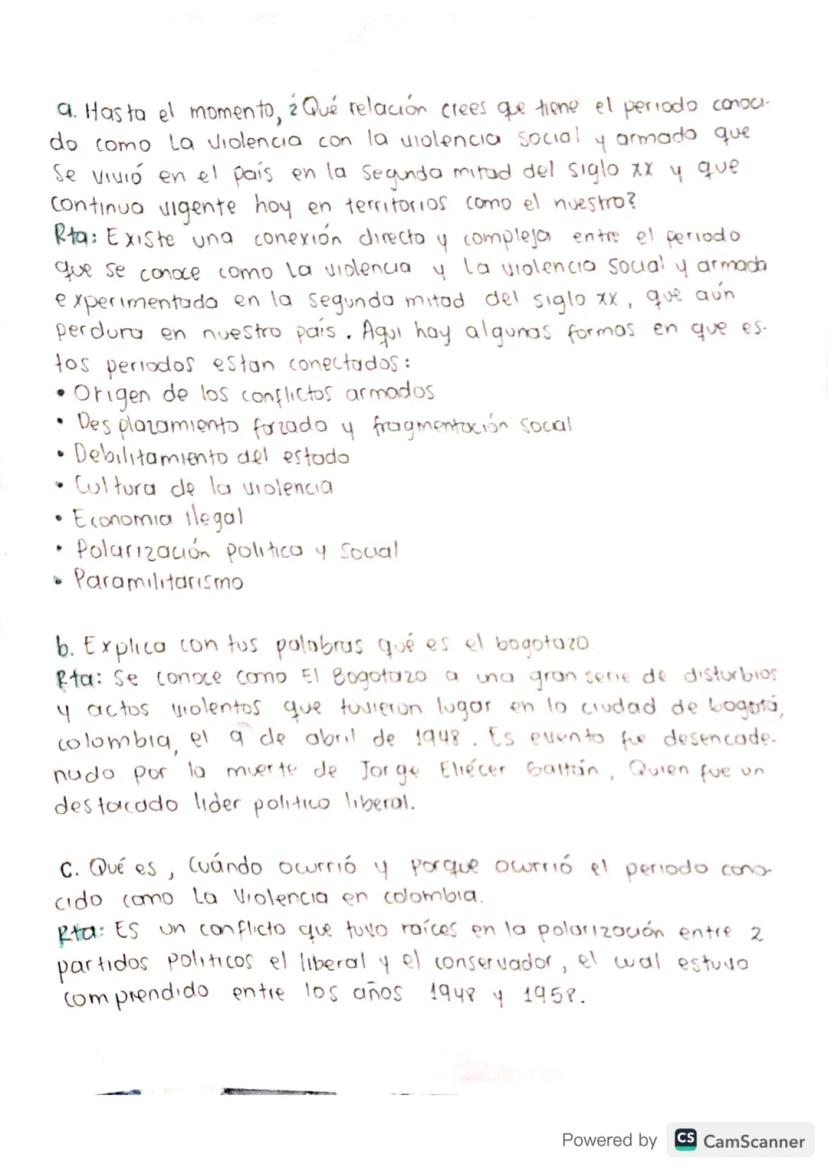 a. Hasta el momento, ¿Qué relación crees que tiene el periodo conoci-
do como La violencia con la violencia social y armada que
se vivió en el país en la segunda mitad del siglo xx y que
continua vigente hoy en territorios como el nuestro?
Rta: Existe una conexión directa y compleja entre el periodo
que se conoce como La violencia y la violencia social y armada
experimentada en la segunda mitad del siglo xx, que aún
perdura en nuestro país. Aqui hay algunas formas en que es-
tos periodos estan conectados:
• Origen de los conflictos armados
• Desplazamiento forzado y fragmentación social
• Debilitamiento del estado
• Cultura de la violencia
• Economia ilegal
• Polarización politica y Social
• Paramilitarismo
b. Explica con tus palabras qué es el bogotazo
Rta: Se conoce como El Bogotazo a una gran serie de disturbios
y actos violentos que tuvieron lugar en la ciudad de bogotá,
colombia, el 9 de abril de 1948. Es evento fue desencade-
nado por la muerte de Jorge Eliécer Gaitán, Quien fue un
destacado lider politico liberal.
C. Qué es, Cuándo ocurrió y porque ocurrió el periodo cono-
cido como La Violencia en colombia.
Rta: ES un conflicto que tuvo raíces en la polarización entre 2
partidos politicos el liberal y el conservador, el cual estuvo
comprendido entre los años 1948 y 1958.
Powered by CS CamScanner